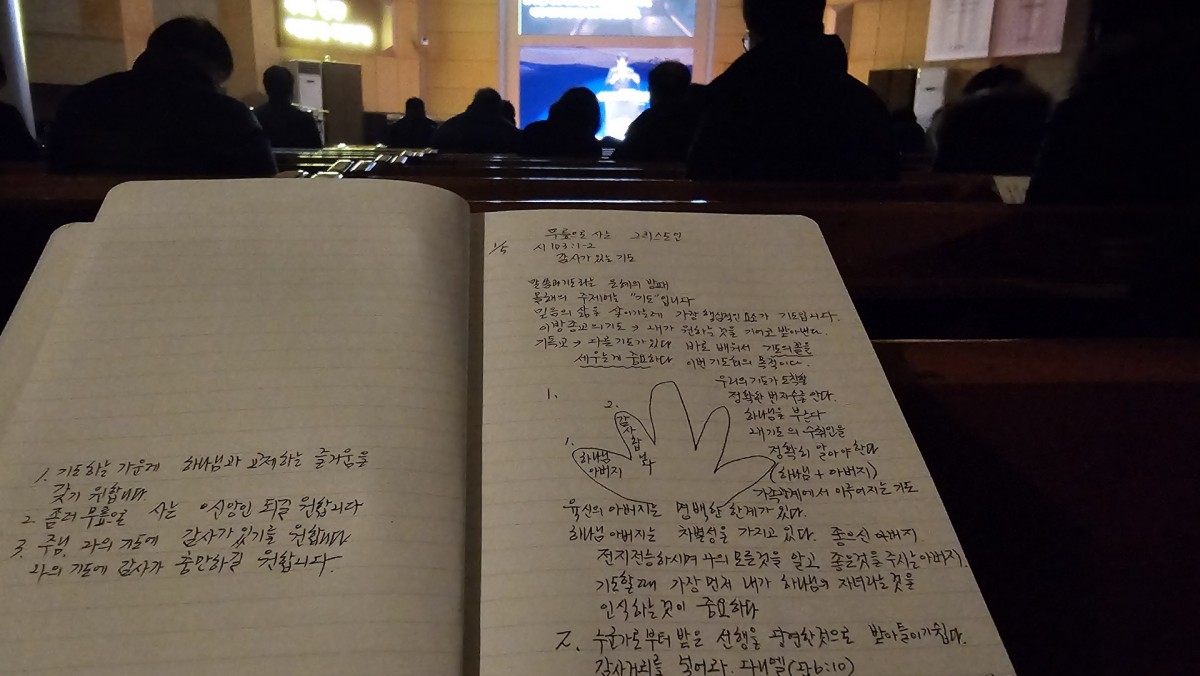 1. 기도하는 가운데 하나님과 교제하는 즐거움을
갖기 원합니다
2. 좀더 무릎으로 사는 신앙인 되길 원합니다
3. 주님, 나의 기도에 감사가 있기를 원합니다
나의 기도에 감사가 충만하길 원합니다.
무릎으로 사는 그리스도인
1/5 시 103:1-2
감사가 있는 기도
올해의 주제어는 "기도"입니다
믿음의 삶을 살아가는데 가장 핵심적인 요소가 기도입니다.
이방종교의 기도 → 내가 원하는 것을 기어코 받아낸다.
기독교 → 다른 기도가 있다 바로 배워서 기도의 꼴을
세우는게 중요하다 이번 기도회의 목적이다.
1.
우리의 기도가 도착할
정확한 번지수를 안다.
하나님을 부른다
내 기도의 수취인을
정확히 알아야 한다
(하나님 + 아버지)
가족관계에서 이루어지는 기도
1. 하나님
아버지
2. 감사합니다
육신의 아버지는 명백한 한계가 있다.
하나님 아버지는 차별성을 가지고 있다. 좋으신 아버지
전지전능하시며 나의 모든것을 알고, 좋은것을 주시는 아버지.
기도할때 가장 먼저 내가 하나님의 자녀라는 것을
인식하는 것이 중요하다
2. 누군가로부터 받은 선행을 당연한 것으로 받아들이기 쉽다.
감사거리를 넣어라. 다니엘(단6:10)